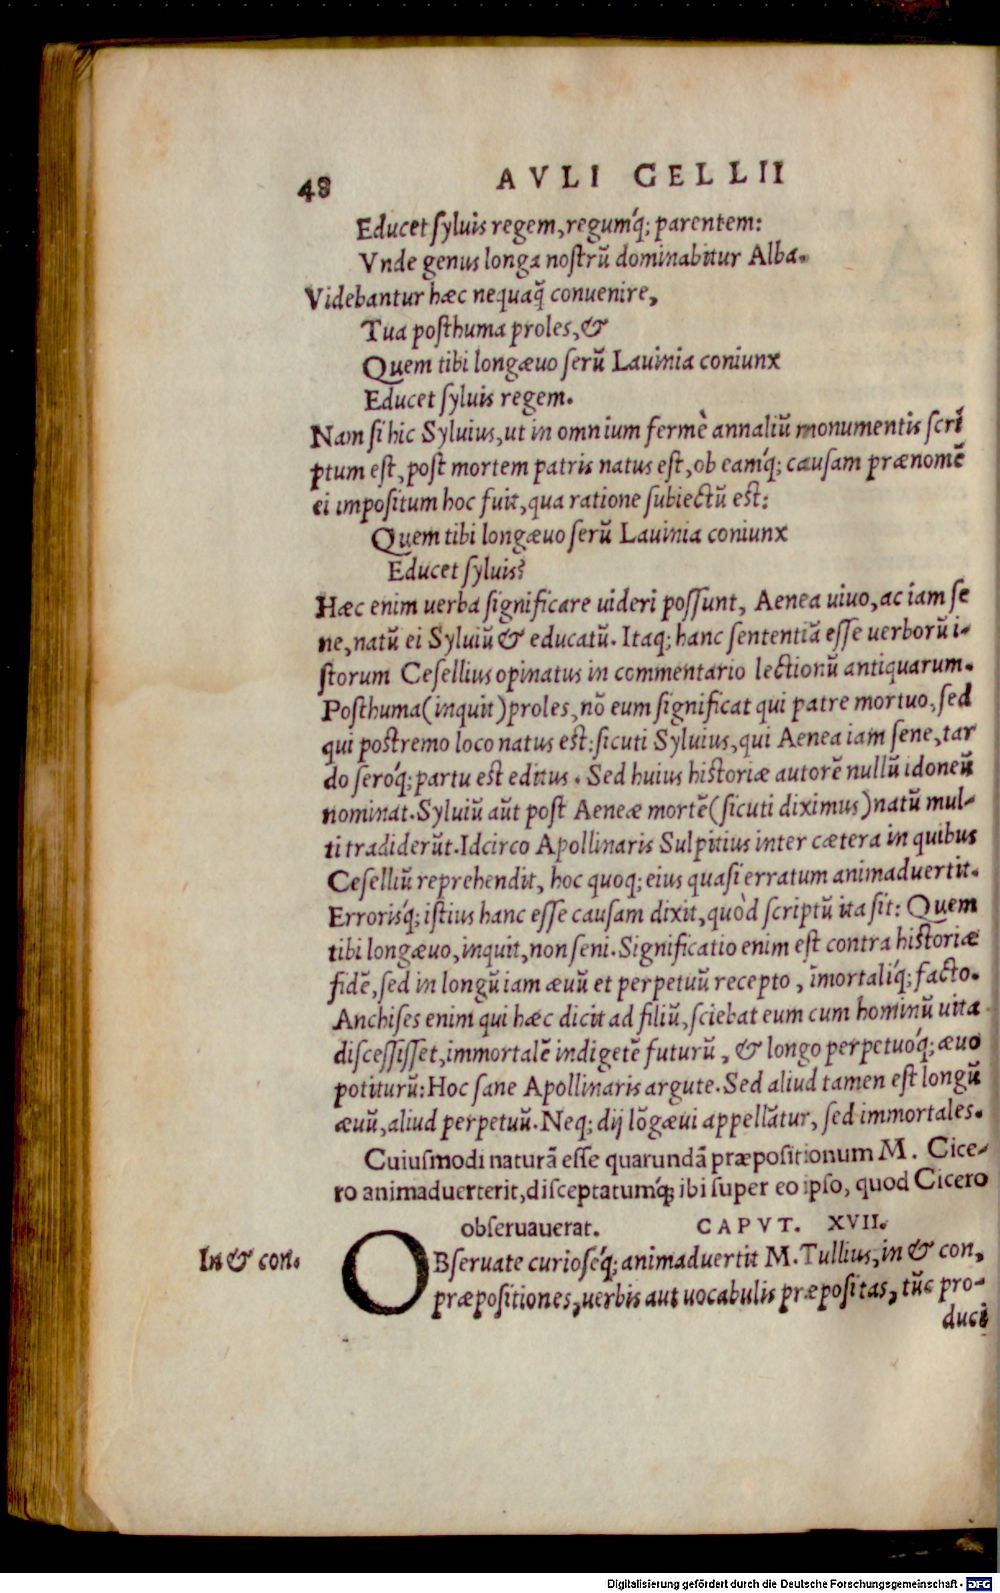 48 AVLI GELLII
Educet ſyluis regem, regumq́; parentem:
Vnde genus longa noſtrũ dominabitur Alba.
Videbantur hæc nequaq̃ conuenire,
Tua poſthuma proles, &
Quem tibi longæuo ſerũ Lauinia coniunx
Educet ſyluis regem.
Nam ſi hic Syluius, ut in omnium fermè annaliũ monumentis ſcri
ptum eſt, poſt mortem patris natus eſt, ob eamq́; cauſam prænomẽ
ei impoſitum hoc fuit, qua ratione ſubiectũ eſt:
Quem tibi longæuo ſerũ Lauinia coniunx
Educet ſyluis?
Hæc enim uerba ſignificare uideri poſſunt, Aenea uiuo, ac iam ſe
ne, natũ ei Syluiũ & educatũ. Itaq; hanc ſententiã eſſe uerborũ i-
ſtorum Ceſellius opinatus in commentario lectionũ antiquarum.
Poſthuma (inquit) proles, nõ eum ſignificat qui patre mortuo, ſed
qui poſtremo loco natus eſt: ſicuti Syluius, qui Aenea iam ſene, tar
do ſeroq́; partu eſt editus. Sed huius hiſtoriæ autorẽ nullũ idoneũ
nominat. Syluiũ aũt poſt Aeneæ mortẽ (ſicuti diximus) natũ mul-
ti tradiderũt. Idcirco Apollinaris Sulpitius inter cætera in quibus
Ceſelliũ reprehendit, hoc quoq; eius quaſi erratum animaduertit.
Erroriſq́; iſtius hanc eſſe cauſam dixit, quòd ſcriptũ ita ſit: Quem
tibi longæuo, inquit, non ſeni. Significatio enim eſt contra hiſtoriæ
fidẽ, ſed in longũ iam æuũ et perpetuũ recepto, ĩmortaliq́; facto.
Anchiſes enim qui hæc dicit ad filiũ, ſciebat eum cum hominũ uita
diſceſſiſſet, immortalẽ indigetẽ futurũ, & longo perpetuoq́; æuo
potiturũ: Hoc ſane Apollinaris argute. Sed aliud tamen eſt longũ
æuũ, aliud perpetuũ. Neq; dij lõgæui appellãtur, ſed immortales.
Cuiuſmodi naturã eſſe quarundã præpoſitionum M. Cice-
ro animaduerterit, diſceptatumq́; ibi ſuper eo ipſo, quod Cicero
obſeruauerat. CAPVT. XVII.
In & con.
OBſeruate curioſeq́; animaduertit M. Tullius, in & con,
præpoſitiones, uerbis aut uocabulis præpoſitas, tũc pro-
duci
Digitalisierung gefördert durch die Deutsche Forschungsgemeinschaft - DFG